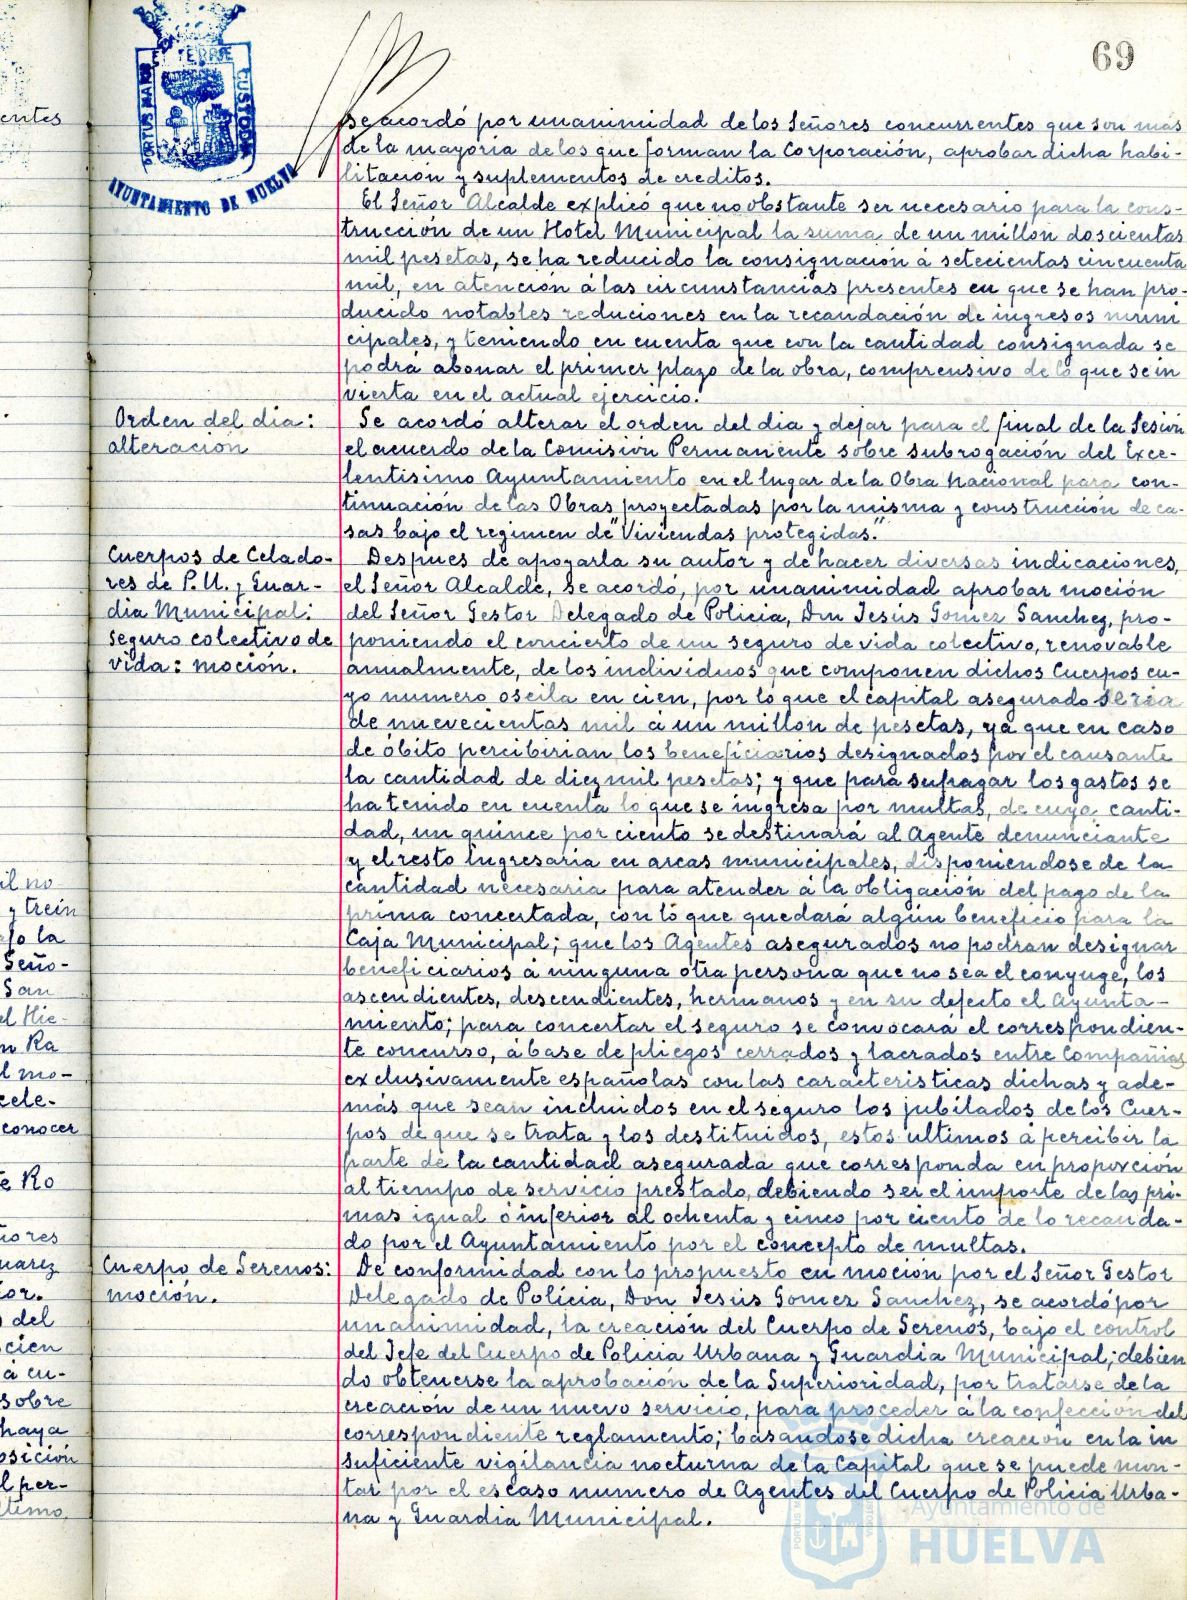 69
PORTUS MARIS
ET TERRE
CUSTODIA
AYUNTAMIENTO DE HUELVA
se acordó por unanimidad de los Señores concurrentes que son más
de la mayoria de los que forman la Corporación, aprobar dicha habi-
litación y suplementos de creditos.
El Señor Alcalde explicó que no obstante ser necesario para la cons-
trucción de un Hotel Municipal la suma de un millon doscientas
mil pesetas, se ha reducido la consignación á setecientas cincuenta
mil, en atención á las circunstancias presentes en que se han pro-
ducido notables reduciones en la recaudación de ingresos muni
cipales, y teniendo en cuenta que con la cantidad consignada se
podrá abonar el primer plazo de la obra, comprensivo de lo que se in
vierta en el actual ejercicio.
Orden del dia:
alteración
Se acordó alterar el orden del dia y dejar para el final de la Sesión
el acuerdo de la Comisión Permanente sobre subrogación del Exce-
lentisimo Ayuntamiento en el lugar de la Obra Nacional para con-
tinuación de las Obras proyectadas por la misma y construcción de ca-
sas bajo el regimen de "Viviendas protegidas".
Cuerpos de Celado-
res de P.U. y Guar-
dia Municipal:
seguro colectivo de
vida: moción.
Despues de apoyarla su autor y de hacer diversas indicaciones,
el Señor Alcalde, se acordó, por unanimidad aprobar moción
del Señor Gestor Delegado de Policia, Don Jesús Gomez Sanchez, pro-
poniendo el concierto de un seguro de vida colectivo, renovable
anualmente, de los individuos que componen dichos Cuerpos cu-
yo numero oscila en cien, por lo que el capital asegurado seria
de nuevecientas mil á un millon de pesetas, ya que en caso
de óbito percibirian los beneficiarios designados por el causante
la cantidad de diez mil pesetas; y que para sufragar los gastos se
ha tenido en cuenta lo que se ingresa por multas, de cuya canti-
dad, un quince por ciento se destinará al Agente denunciante
y el resto ingresaria en arcas municipales, disponiendose de la
cantidad necesaria para atender á la obligación del pago de la
prima concertada, con lo que quedará algún beneficio para la
Caja Municipal; que los Agentes asegurados no podran designar
beneficiarios á ninguna otra persona que no sea el conyuge, los
ascendientes, descendientes, hermanos y en su defecto el Ayunta-
miento; para concertar el seguro se convocará el correspondien-
te concurso, á base de pliegos cerrados y lacrados entre Compañias
exclusivamente españolas con las caracteristicas dichas y ade-
más que sean incluidos en el seguro los jubilados de los Cuer-
pos de que se trata y los destituidos, estos ultimos á percibir la
parte de la cantidad asegurada que corresponda en proporción
al tiempo de servicio prestado, debiendo ser el importe de las pri-
mas igual ó inferior al ochenta y cinco por ciento de lo recauda-
do por el Ayuntamiento por el concepto de multas.
Cuerpo de Serenos:
moción.
De conformidad con lo propuesto en moción por el Señor Gestor
Delegado de Policia, Don Jesús Gomez Sanchez, se acordó por
unanimidad, la creación del Cuerpo de Serenos, bajo el control
del Jefe del Cuerpo de Policia Urbana y Guardia Municipal; debien
do obtenerse la aprobación de la Superioridad, por tratarse de la
creación de un nuevo servicio, para proceder á la confección del
correspondiente reglamento; basandose dicha creación en la in
suficiente vigilancia nocturna de la Capital que se puede mon-
tar por el escaso numero de Agentes del Cuerpo de Policia Urba-
na y Guardia Municipal.
Ayuntamiento de
HUELVA
entes
il no
y trein
ajo la
Seño-
San
el Hie-
n Ra
l mo-
cele-
conocer
e Ro
ñores
uarez
ior.
del
cien
á cu-
sobre
haya
osición
l per-
ltimo